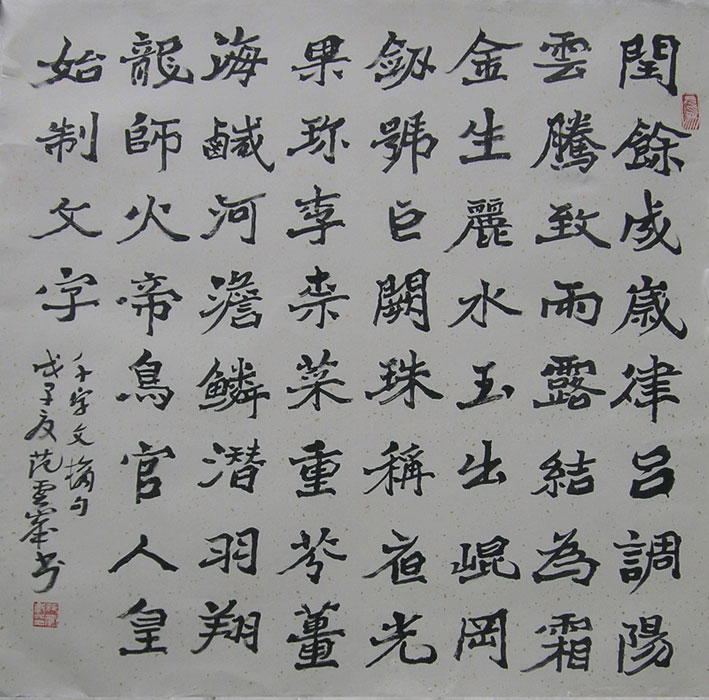 閏餘成歲律呂調陽
雲騰致雨露結為霜
金生麗水玉出崐岡
劔號巨闕珠稱夜光
果珎李柰菜重芥薑
海鹹河澹鱗潛羽翔
龍師火帝鳥官人皇
始制文字
千字文摘句
戊子夏范雲峯书